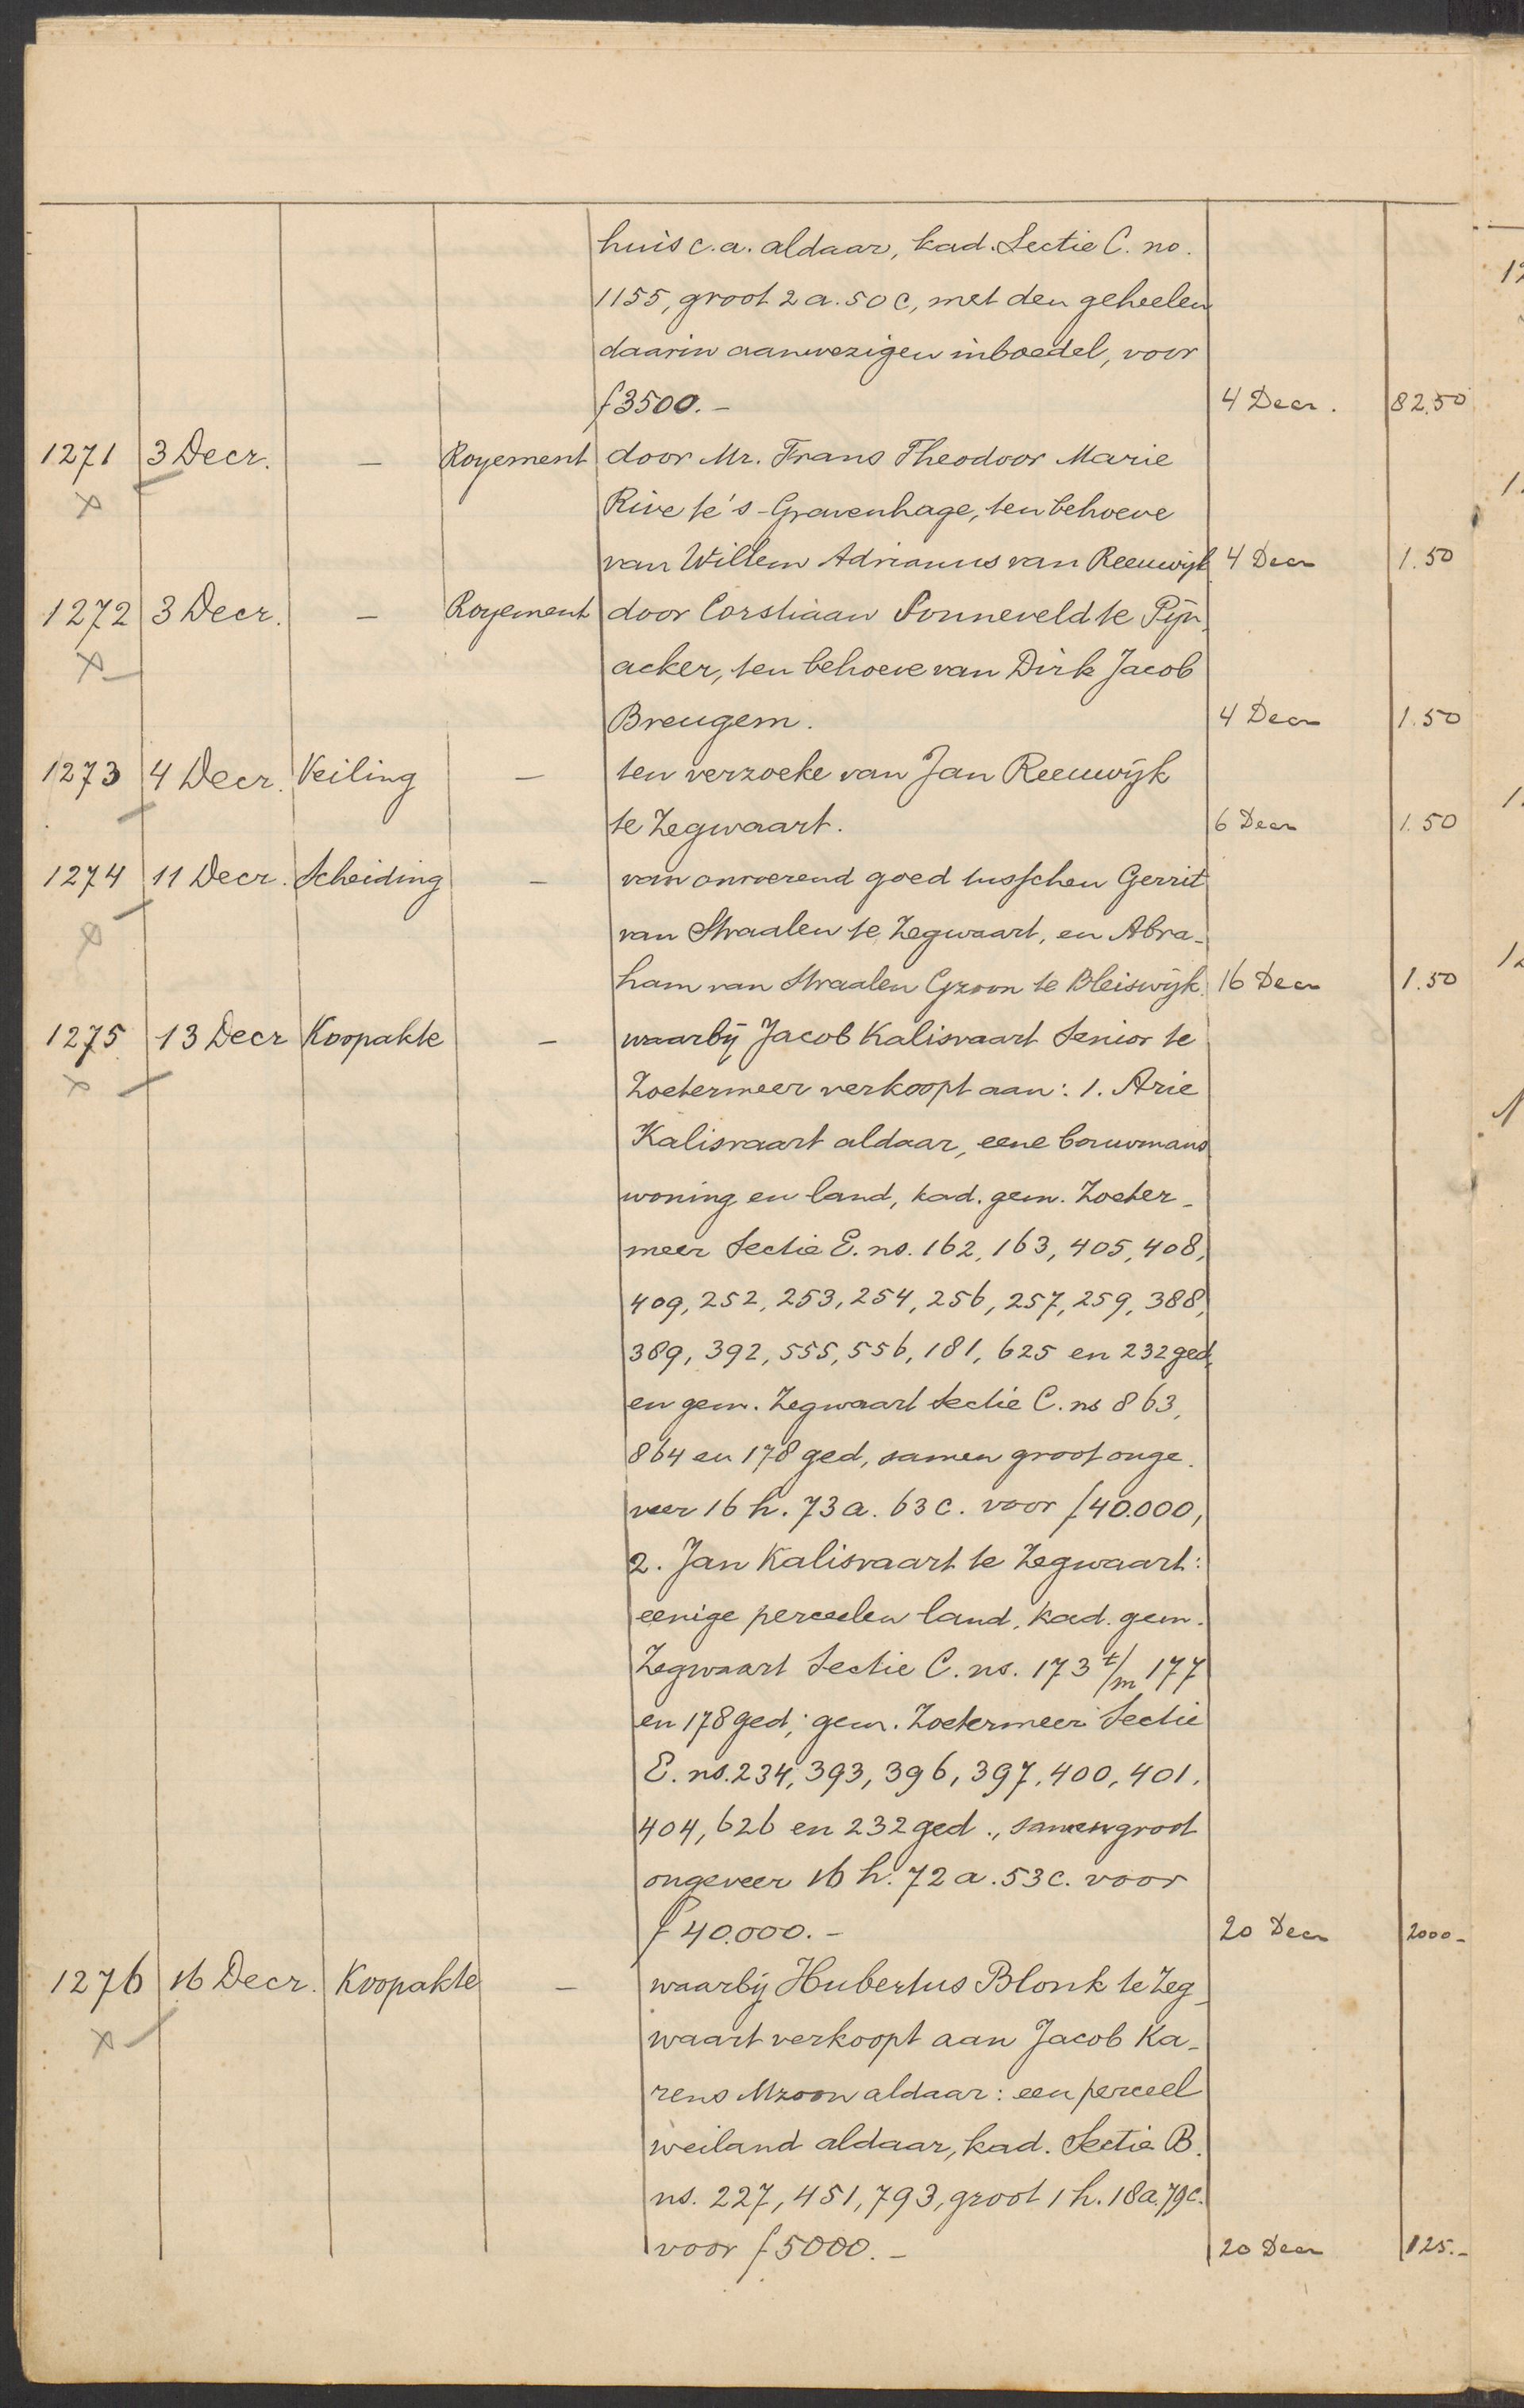 huis c.a. aldaar, kad. Sectie C. no.
1155, groot 2 a. 50 c, met den geheelen
daarin aanwezigen inboedel, voor
f 3500.- 4 Decr. 82.50
1271 3 Decr. - Royement door Mr. Frans Theodoor Marie
Rive te 's-Gravenhage, ten behoeve
van Willem Adrianus van Reeuwijk 4 Decr 1.50
1272 3 Decr. - Royement door Corstiaan Sonneveld te Pijn-
acker, ten behoeve van Dirk Jacob
Breugem. 4 Decr 1.50
1273 4 Decr. Veiling - ten verzoeke van Jan Reeuwijk
te Zegwaart. 6 Decr 1.50
1274 11 Decr. Scheiding - van onroerend goed tusschen Gerrit
van Straalen te Zegwaart, en Abra-
ham van Straalen Gzoon te Bleiswijk. 16 Decr 1.50
1275 13 Decr Koopakte - waarbij Jacob Kalisvaart Senior te
Zoetermeer verkoopt aan: 1. Arie
Kalisvaart aldaar, eene bouwmans
woning en land, kad. gem. Zoeter-
meer Sectie E. ns. 162, 163, 405, 408,
409, 252, 253, 254, 256, 257, 259, 388,
389, 392, 555, 556, 181, 625 en 232 ged,
en gem. Zegwaart Sectie C. ns 863,
864 en 178 ged, samen groot onge-
veer 16 h. 73 a. 63 c. voor f 40.000,
2. Jan Kalisvaart te Zegwaart:
eenige perceelen land, kad. gem.
Zegwaart Sectie C. ns. 173 t/m 177
en 178 ged; gem. Zoetermeer Sectie
E. ns. 234, 393, 396, 397, 400, 401,
404, 626 en 232 ged., samen groot
ongeveer 16 h. 72 a. 53 c. voor
f 40.000.- 20 Decr 2000-
1276 16 Decr. Koopakte - waarbij Hubertus Blonk te Zeg-
waart verkoopt aan Jacob Ka-
rens Mzoon aldaar: een perceel
weiland aldaar, kad. Sectie B.
ns. 227, 451, 793, groot 1 h. 18 a. 79 c.
voor f 5000.- 20 Decr 125.-